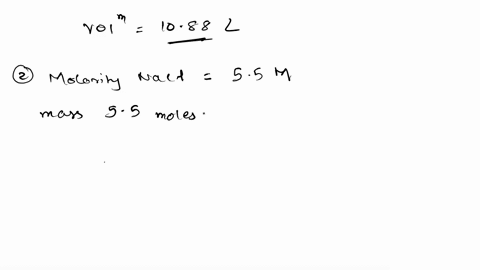 vol^m = 10.88 L
② Molarity NaCl = 5.5 M
mass 5.5 moles.